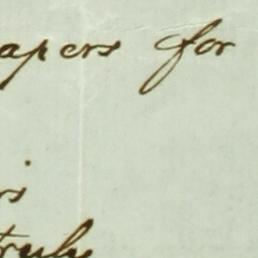 apers for
rs
truly